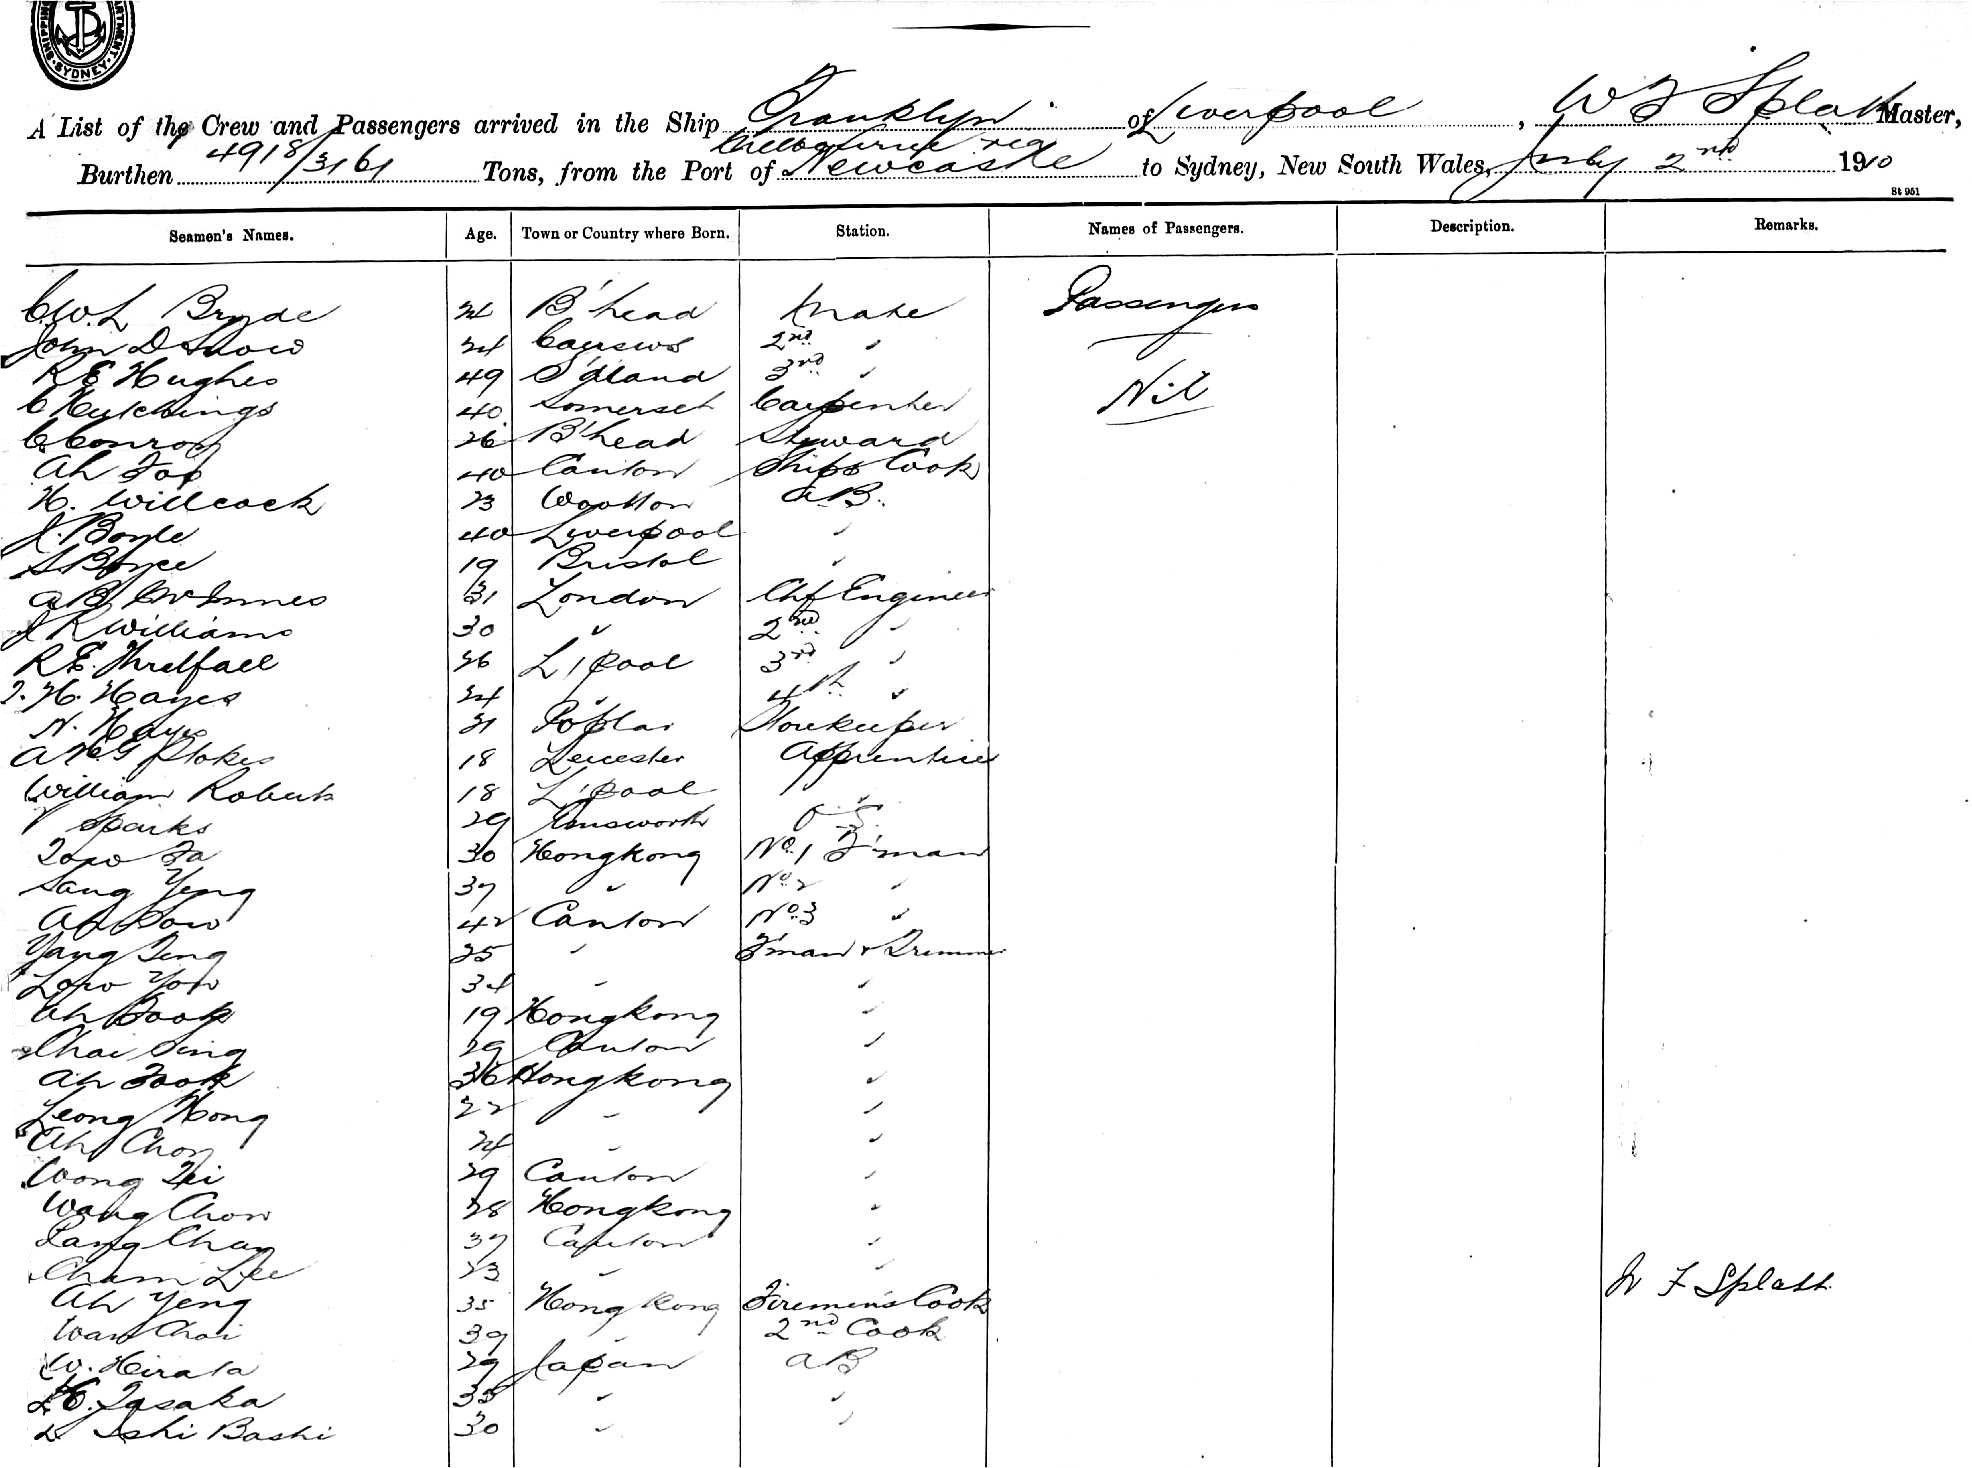 SHIPPING DEPARTMENT SYDNEY
A List of the Crew and Passengers arrived in the Ship Franklyn of Liverpool, W F Splatt Master,
Melbourne via
Burthen 4918/3161 Tons, from the Port of Newcastle to Sydney, New South Wales, July 2nd 1910
St 951
Seamen's Names. Age. Town or Country where Born. Station. Names of Passengers. Description. Remarks.
C.W.L Bryde 24 B'head Mate Passengers
John D Snow 24 Caersws 2nd "
R E Hughes 49 S'dland 3rd " Nil
C Hutchings 40 Somerset Carpenter
C Conroy 26 B'head Steward
Ah Foo 40 Canton Ships Cook
H. Willcock 23 Wootton A.B.
J. Boyle 40 Liverpool "
S Boyce 19 Bristol "
A B McInnes 31 London Chf Engineer
J R Williams 30 " 2nd "
R E. Threlfall 26 L'pool 3rd "
T. H. Hayes 24 " 4th "
N. Hayes 21 Poplar Storekeeper
A Stokes 18 Leicester Apprentice
William Roberts 18 L'pool "
Sparks 29 Ainsworth
Fa 30 Hongkong No. 1 F'man
Sang Yeng 37 " No. 2 "
Ah Sow 42 Canton No. 3 "
Yang Seng 25 " F'man & Trimmer
Low Yow 34 " "
Ah Sook 19 Hongkong "
Chai Sing 29 Canton "
Ah Fook 36 Hongkong "
Leong Hong 22 " "
Ah Choy 24 " "
Wong Fei 29 Canton "
Wong Chow 28 Hongkong "
Lang Chay 37 Canton "
Cham Lee 23 " "
W F Splatt
Ah Yeng 35 Hong Kong Firemen's Cook
Wan Choi 39 " 2nd Cook
W. Hirata 29 Japan AB
Tasaka 35 " "
Ishi Bashi 30 " "